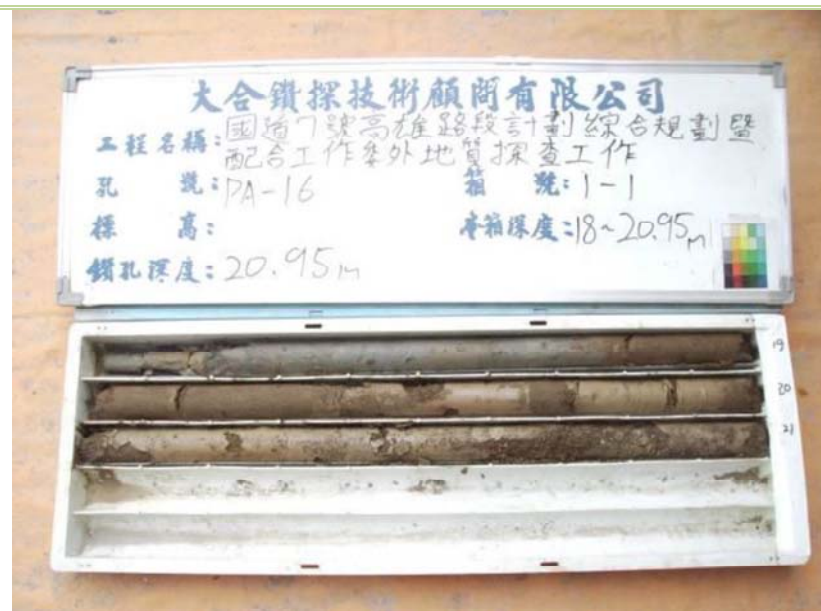 大合鑽探技術顧問有限公司
工程名稱:國道7號高雄路段計劃綜合規劃暨
配合工作委外地質探查工作
孔 號:PA-16 箱 號:1-1
標 高: 本箱深度:18~20.95m
鑽孔深度:20.95m
19
20
21